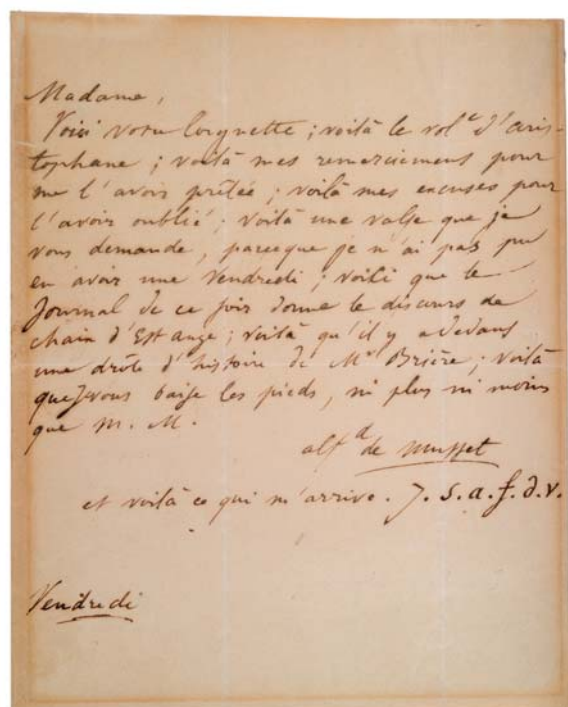 Madame,
Voici votre lorgnette ; voilà le vol.e d'aris-
tophane ; voilà mes remerciemens pour
me l'avoir prêtée ; voilà mes excuses pour
l'avoir oublié ; voilà une valse que je
vous demande, parceque je n'ai pas pu
en avoir une Vendredi ; voilà que le
Journal de ce soir donne le discours de
chaix d'Est ange ; voilà qu'il y a dedans
une drôle d'histoire de Mr Brière ; voilà
que je vous baise les pieds, ni plus ni moins
que M. M.
alfd de Musset
et voilà ce qui m'arrive. J. s. a. f. d. v.
Vendredi